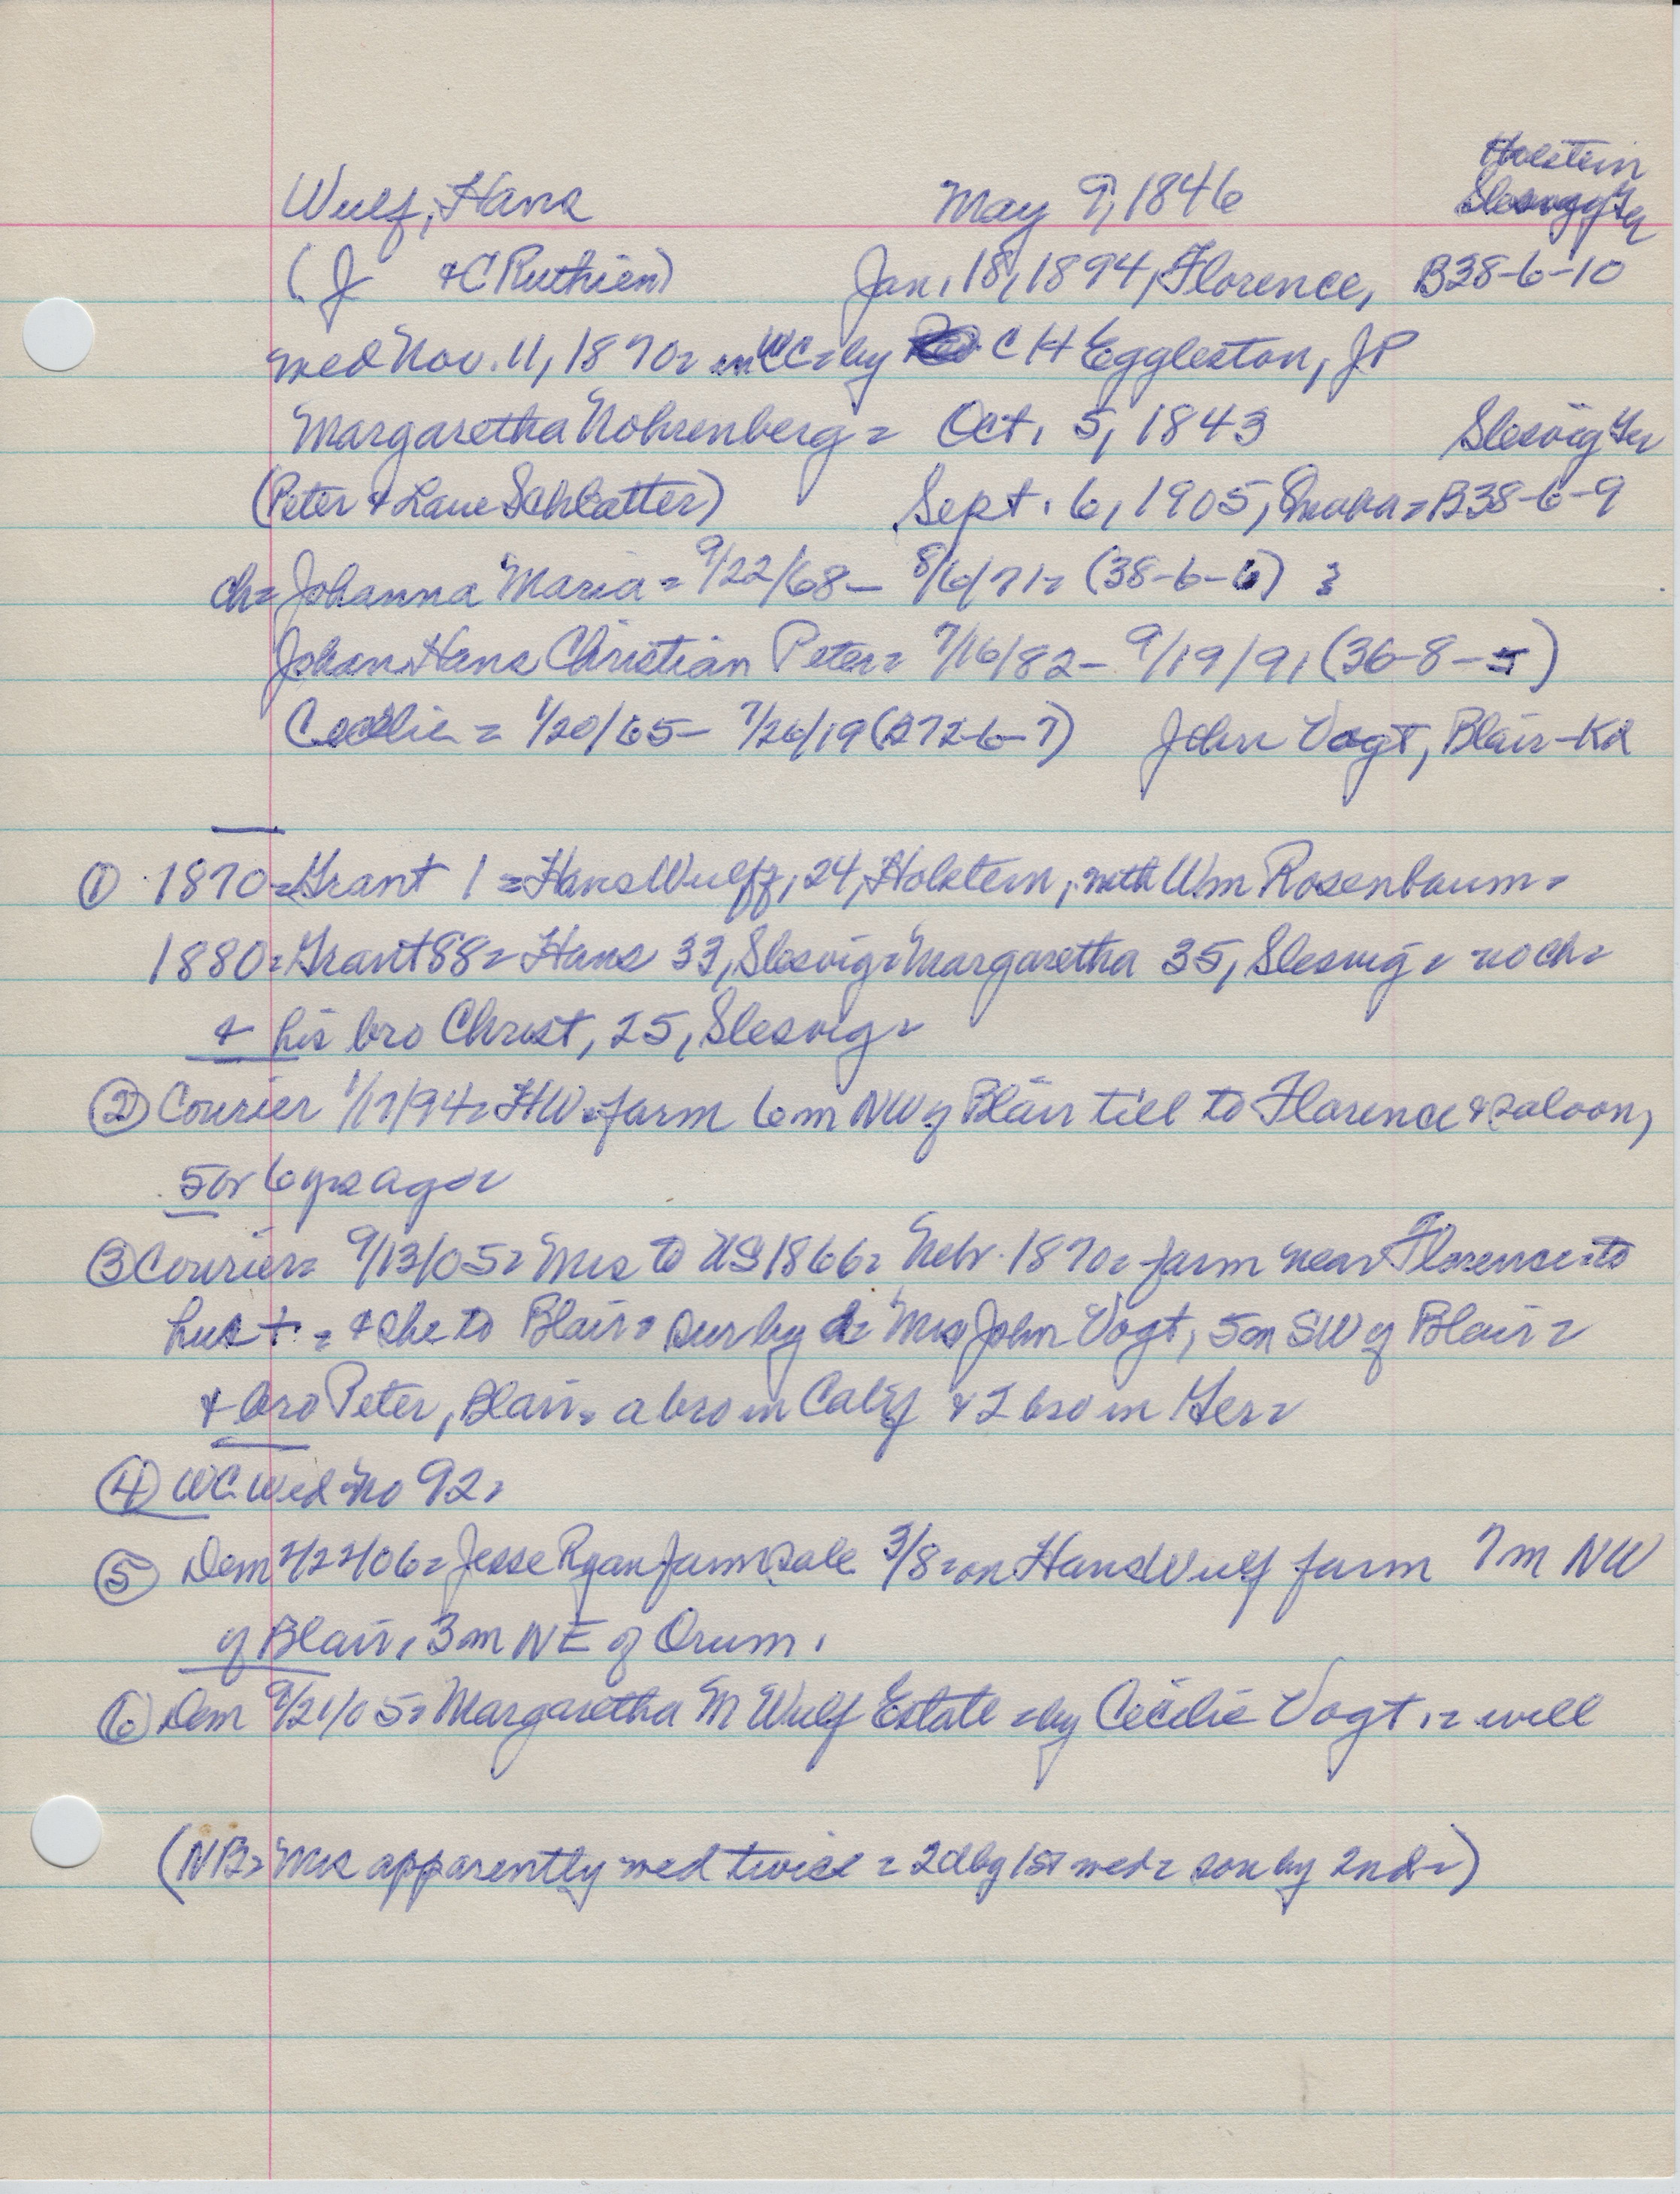 Holstein
Wulf, Hans May 9, 1846 Ger
(J &C Ruthien) Jan. 18, 1894, Florence, B38-6-10
wed Nov. 11, 1870= in WC= by C H Eggleston, JP
Margaretha Rohrenberg= Oct. 5, 1843 Slesvig Ger
(Peter & Lane Schlatter) Sept. 6, 1905, Omaha= B38-6-9
ch= Johanna Maria= 9/22/68- 8/6/71= (38-6-6) 3
Johan Hans Christian Peter= 7/16/82- 9/19/91 (36-8-5)
Cecilie= 1/20/65- 7/26/19 (B72-6-7) John Vogt, Blair-Kd
① 1870= Grant 1= Hans Wulff, 24, Holstein, with Wm Rosenbaum=
1880= Grant 88= Hans 33, Slesvig= Margaretha 35, Slesvig= no ch=
& his bro Christ, 25, Slesvig=
② Courier 1/17/94= HW= farm 6m NW of Blair till to Florence & saloon,
5 or 6 yrs ago=
③ Courier= 9/13/05= Mrs to US 1866= Nebr. 1870= farm near Florence= to
hus +.= & she to Blair= sur by d= Mrs John Vogt, 5m SW of Blair=
& bro Peter, Blair= a bro in Calif & 2 bro in Ger=
④ WC Wed No 92=
⑤ Dem 2/22/06= Jesse Ryan farm sale 3/8= on Hans Wulf farm 7m NW
of Blair, 3m NE of Orum.
⑥ Dem 9/21/05= Margaretha M Wulf Estate= by Cecilie Vogt.= will
(NB= Mrs apparently wed twice= 2d by 1st wed= son by 2nd=)